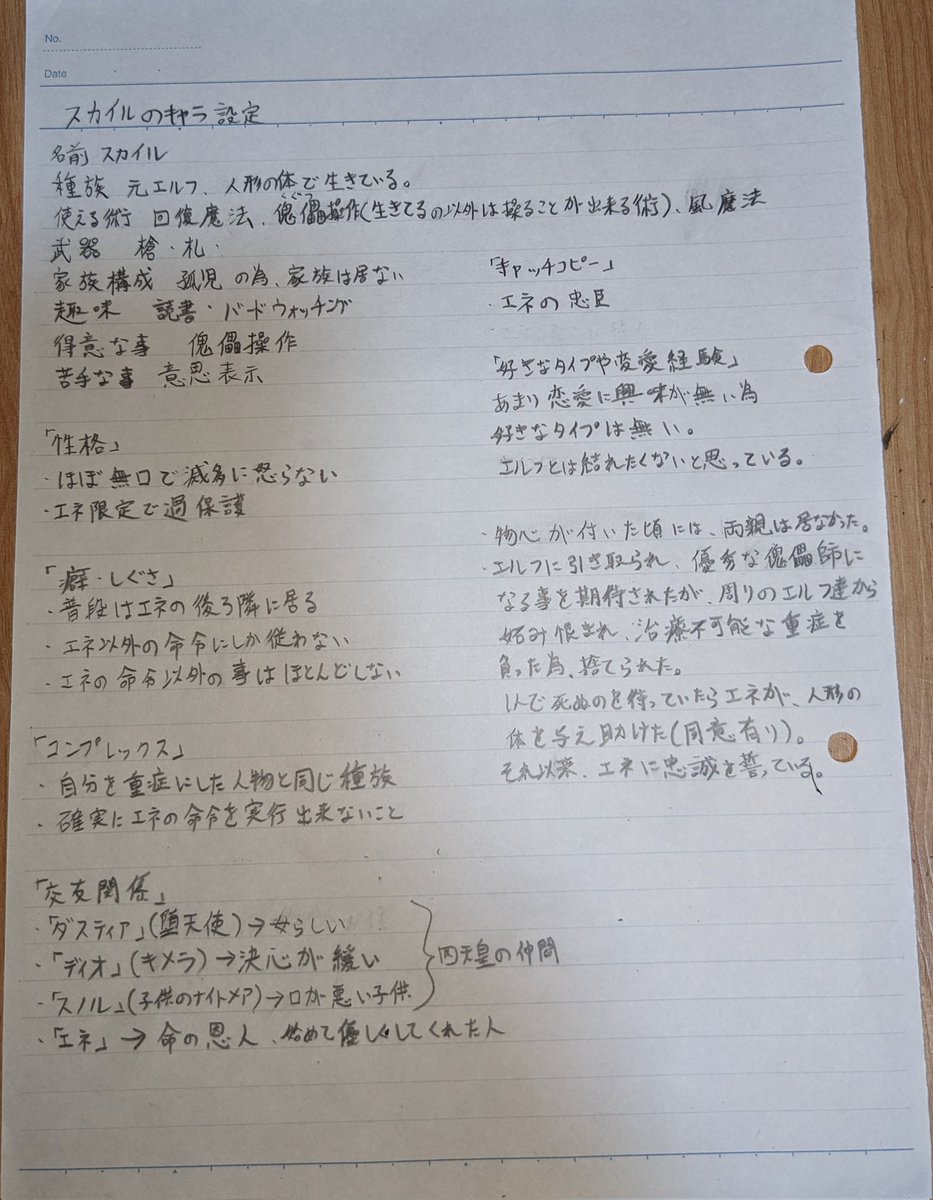 No.
Date
スカイルのキャラ設定
名前 スカイル
種族 元エルフ、人形の体で生きている。
使える術 回復魔法、傀儡操作(生きてるの以外は操ることが出来る術)、風魔法
くぐつ
武器 槍・札・
家族構成 孤児の為、家族は居ない
趣味 読書・バードウォッチング
得意な事 傀儡操作
苦手な事 意思表示
「性格」
・ほぼ無口で滅多に怒らない
・エネ限定で過保護
「癖・しぐさ」
・普段はエネの後ろ隣に居る
・エネ以外の命令にしか従わない
・エネの命令以外の事はほとんどしない
「コンプレックス」
・自分を重症にした人物と同じ種族
・確実にエネの命令を実行出来ないこと
「交友関係」
・「ダスティア」(堕天使)→女らしい
・「ディオ」(キメラ)→決心が緩い
・「スノル」(子供のナイトメア)→口が悪い子供
四天皇の仲間
・「エネ」→命の恩人、始めて優しくしてくれた人
「キャッチコピー」
・エネの忠臣
「好きなタイプや恋愛経験」
あまり恋愛に興味が無い為
好きなタイプは無い。
エルフとは結れたくないと思っている。
・物心が付いた頃には、両親は居なかった。
・エルフに引き取られ、優秀な傀儡師に
なる事を期待されたが、周りのエルフ達から
妬み恨まれ、治療不可能な重症を
負った為、捨てられた。
1人で死ぬのを待っていたらエネが、人形の
体を与え助けた(同意有り)。
それ以来、エネに忠誠を誓っている。